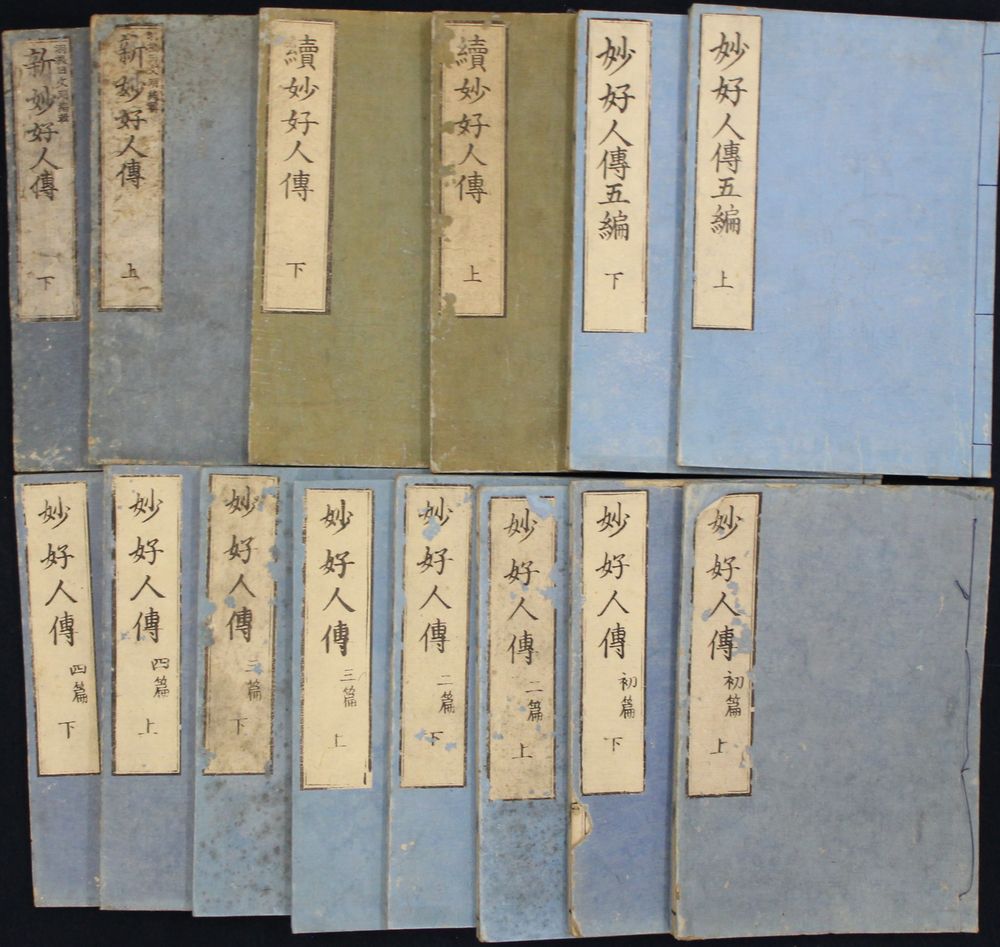 妙好人傳五編 上
妙好人傳五編 下
續妙好人傳 上
續妙好人傳 下
新妙好人傳 上
新妙好人傳 下
妙好人傳 初篇 上
妙好人傳 初篇 下
妙好人傳 二篇 上
妙好人傳 二篇 下
妙好人傳 三篇 上
妙好人傳 三篇 下
妙好人傳 四篇 上
妙好人傳 四篇 下